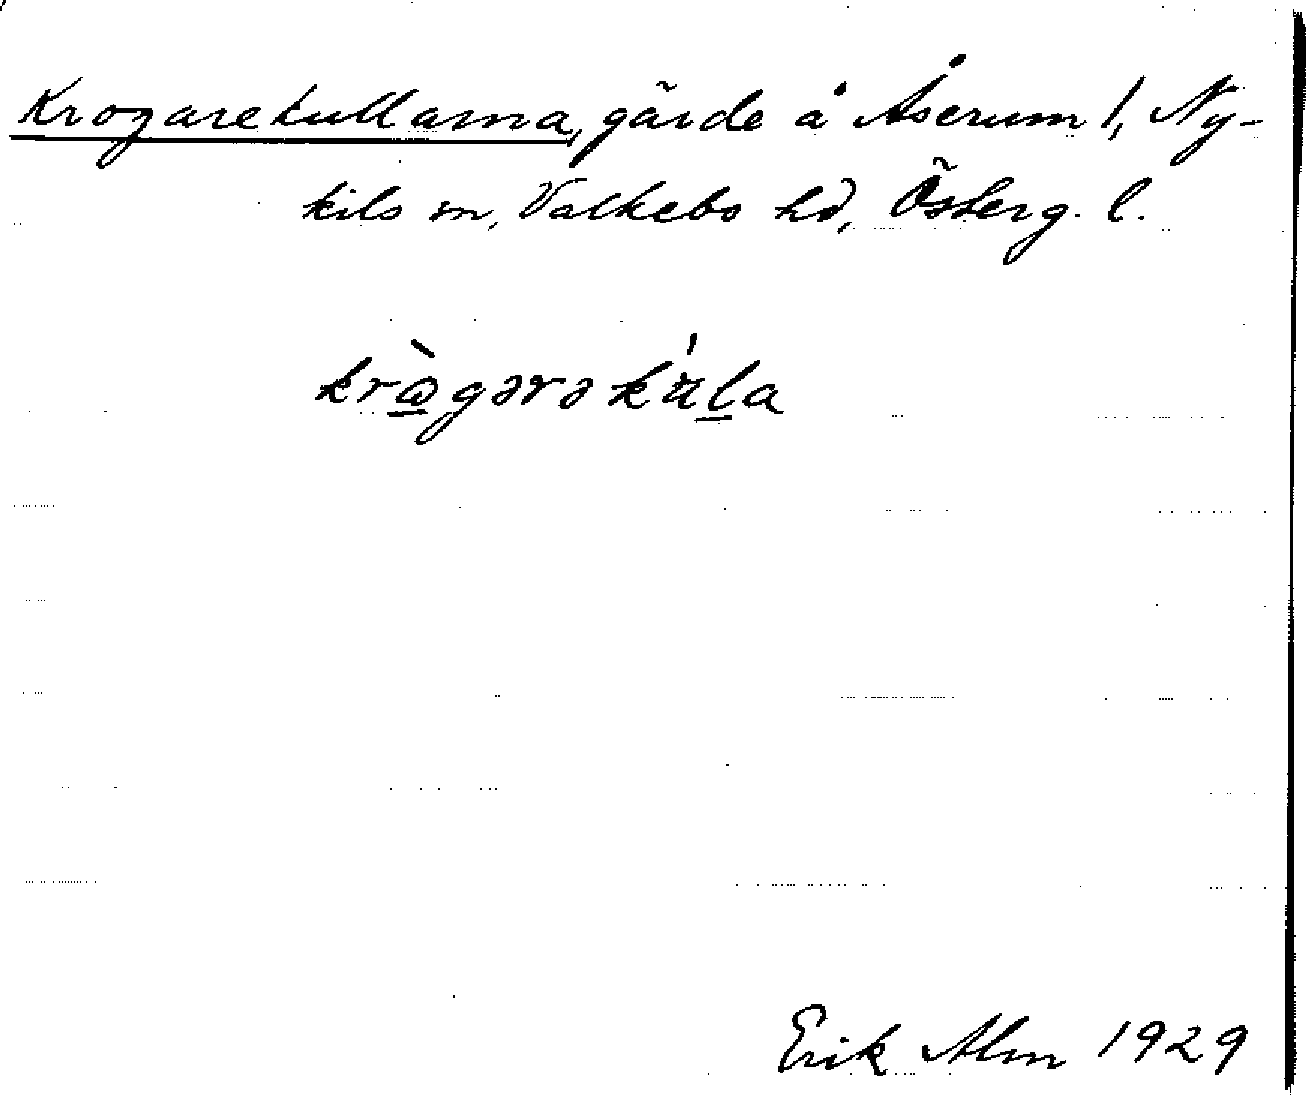 Krogarekullarna, gärde å Åserum 1, Ny-
kils sn, Valkebo hd, Österg. l.
krὼ̲gərək'u̇l̲a
Erik Alm 1929